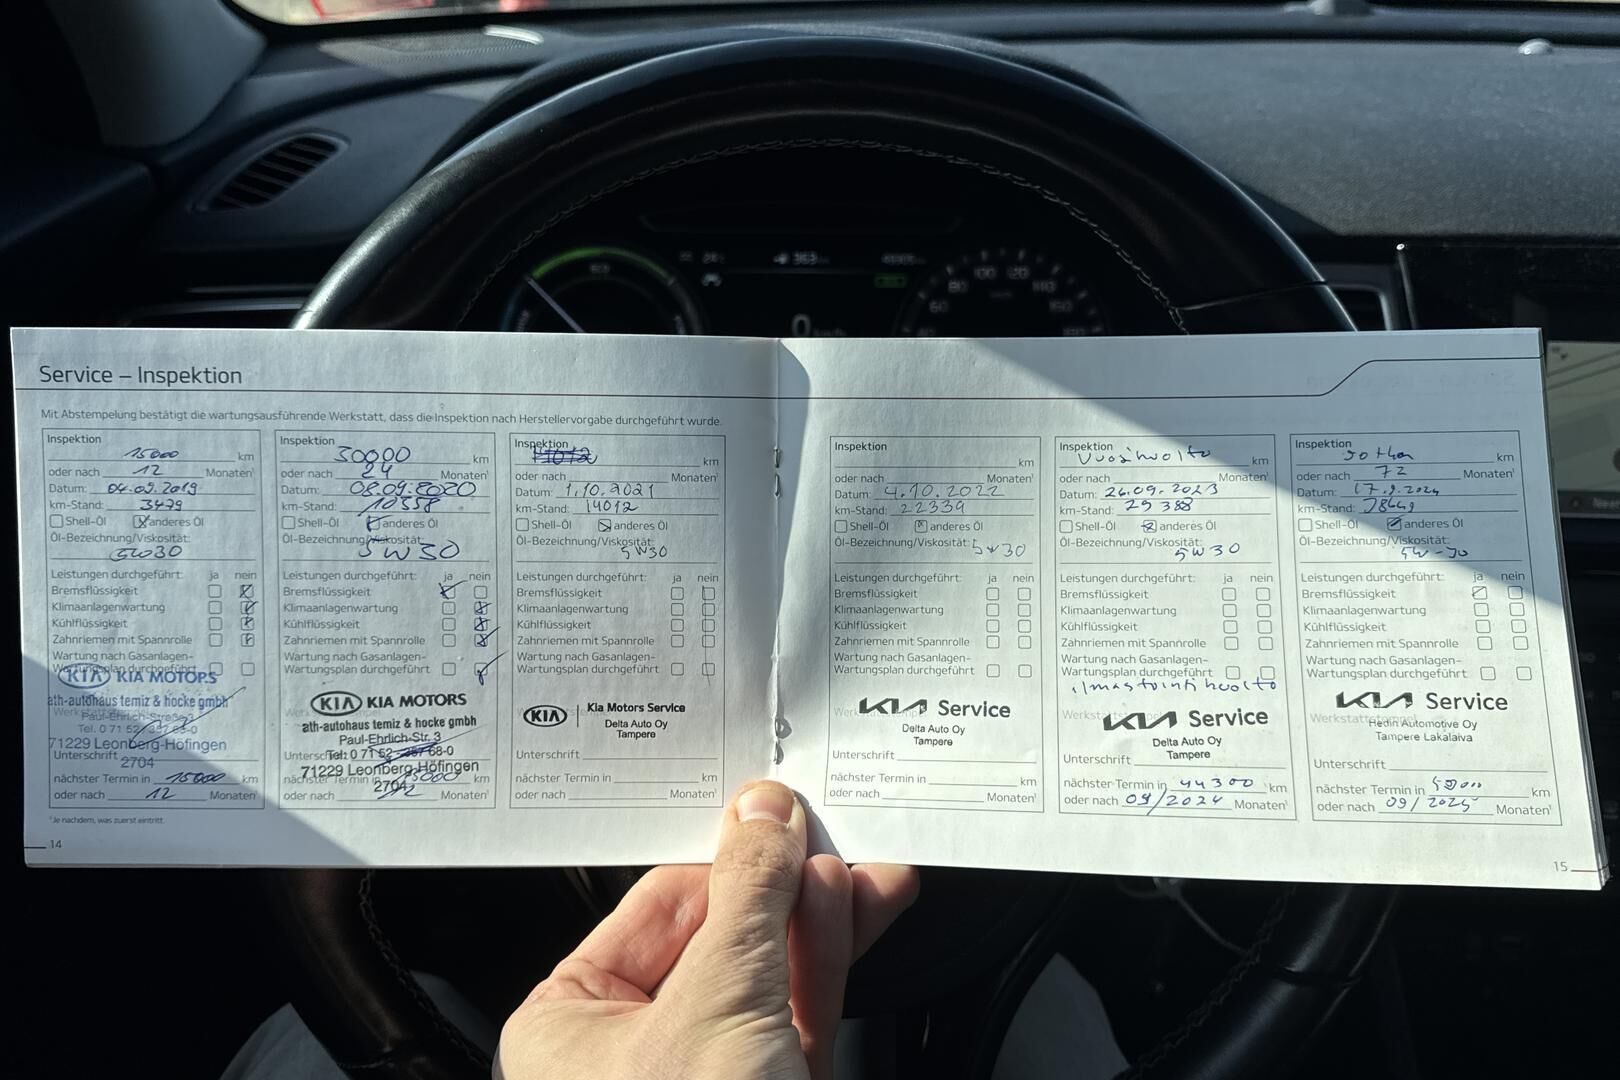 363
100 120
80
60
0 km/h
Service – Inspektion
Mit Abstempelung bestätigt die wartungsausführende Werkstatt, dass die Inspektion nach Herstellervorgabe durchgeführt wurde.
Inspektion
15000 km
oder nach 12 Monaten¹
Datum: 04.09.2019
km-Stand: 3479
Shell-Öl anderes Öl
Öl-Bezeichnung/Viskosität:
5W30
Leistungen durchgeführt: ja nein
Bremsflüssigkeit
Klimaanlagenwartung
Kühlflüssigkeit
Zahnriemen mit Spannrolle
Wartung nach Gasanlagen-
Wartungsplan durchgeführt
KIA KIA MOTORS
ath-autohaus temiz & hocke gmbh
Paul-Ehrlich-Straße 3
71229 Leonberg-Höfingen
Unterschrift 2704
nächster Termin in 15000 km
oder nach 12 Monaten¹
¹Je nachdem, was zuerst eintritt.
14
Inspektion
30000 km
oder nach 24 Monaten¹
Datum: 08.09.2020
km-Stand: 10558
Shell-Öl anderes Öl
Öl-Bezeichnung/Viskosität:
5W30
Leistungen durchgeführt: ja nein
Bremsflüssigkeit
Klimaanlagenwartung
Kühlflüssigkeit
Zahnriemen mit Spannrolle
Wartung nach Gasanlagen-
Wartungsplan durchgeführt
KIA KIA MOTORS
ath-autohaus temiz & hocke gmbh
Paul-Ehrlich-Str. 3
71229 Leonberg-Höfingen
nächster Termin in 15000 km
2704
oder nach 12 Monaten¹
Inspektion
km
oder nach Monaten¹
Datum: 1.10.2021
km-Stand: 14012
Shell-Öl anderes Öl
Öl-Bezeichnung/Viskosität:
5W30
Leistungen durchgeführt: ja nein
Bremsflüssigkeit
Klimaanlagenwartung
Kühlflüssigkeit
Zahnriemen mit Spannrolle
Wartung nach Gasanlagen-
Wartungsplan durchgeführt
KIA Kia Motors Service
Delta Auto Oy
Tampere
Unterschrift:
nächster Termin in km
oder nach Monaten¹
Inspektion
km
oder nach Monaten¹
Datum: 4.10.2022
km-Stand: 22339
Shell-Öl anderes Öl
Öl-Bezeichnung/Viskosität: 5W30
Leistungen durchgeführt: ja nein
Bremsflüssigkeit
Klimaanlagenwartung
Kühlflüssigkeit
Zahnriemen mit Spannrolle
Wartung nach Gasanlagen-
Wartungsplan durchgeführt
KIA Service
Delta Auto Oy
Tampere
Unterschrift:
nächster Termin in km
oder nach Monaten¹
Inspektion
Vuosihuolto km
oder nach Monaten¹
Datum: 26.09.2023
km-Stand: 29388
Shell-Öl anderes Öl
Öl-Bezeichnung/Viskosität:
5W30
Leistungen durchgeführt: ja nein
Bremsflüssigkeit
Klimaanlagenwartung
Kühlflüssigkeit
Zahnriemen mit Spannrolle
Wartung nach Gasanlagen-
Wartungsplan durchgeführt
ilmastointi huolto
KIA Service
Delta Auto Oy
Tampere
Unterschrift:
nächster Termin in 44300 km
oder nach 09/2024 Monaten¹
Inspektion
km
oder nach 72 Monaten¹
Datum: 17.9.2024
km-Stand:
Shell-Öl anderes Öl
Öl-Bezeichnung/Viskosität:
5W-30
Leistungen durchgeführt: ja nein
Bremsflüssigkeit
Klimaanlagenwartung
Kühlflüssigkeit
Zahnriemen mit Spannrolle
Wartung nach Gasanlagen-
Wartungsplan durchgeführt
KIA Service
Hedin Automotive Oy
Tampere Lakalaiva
Unterschrift:
nächster Termin in km
oder nach 09/2025 Monaten¹
15